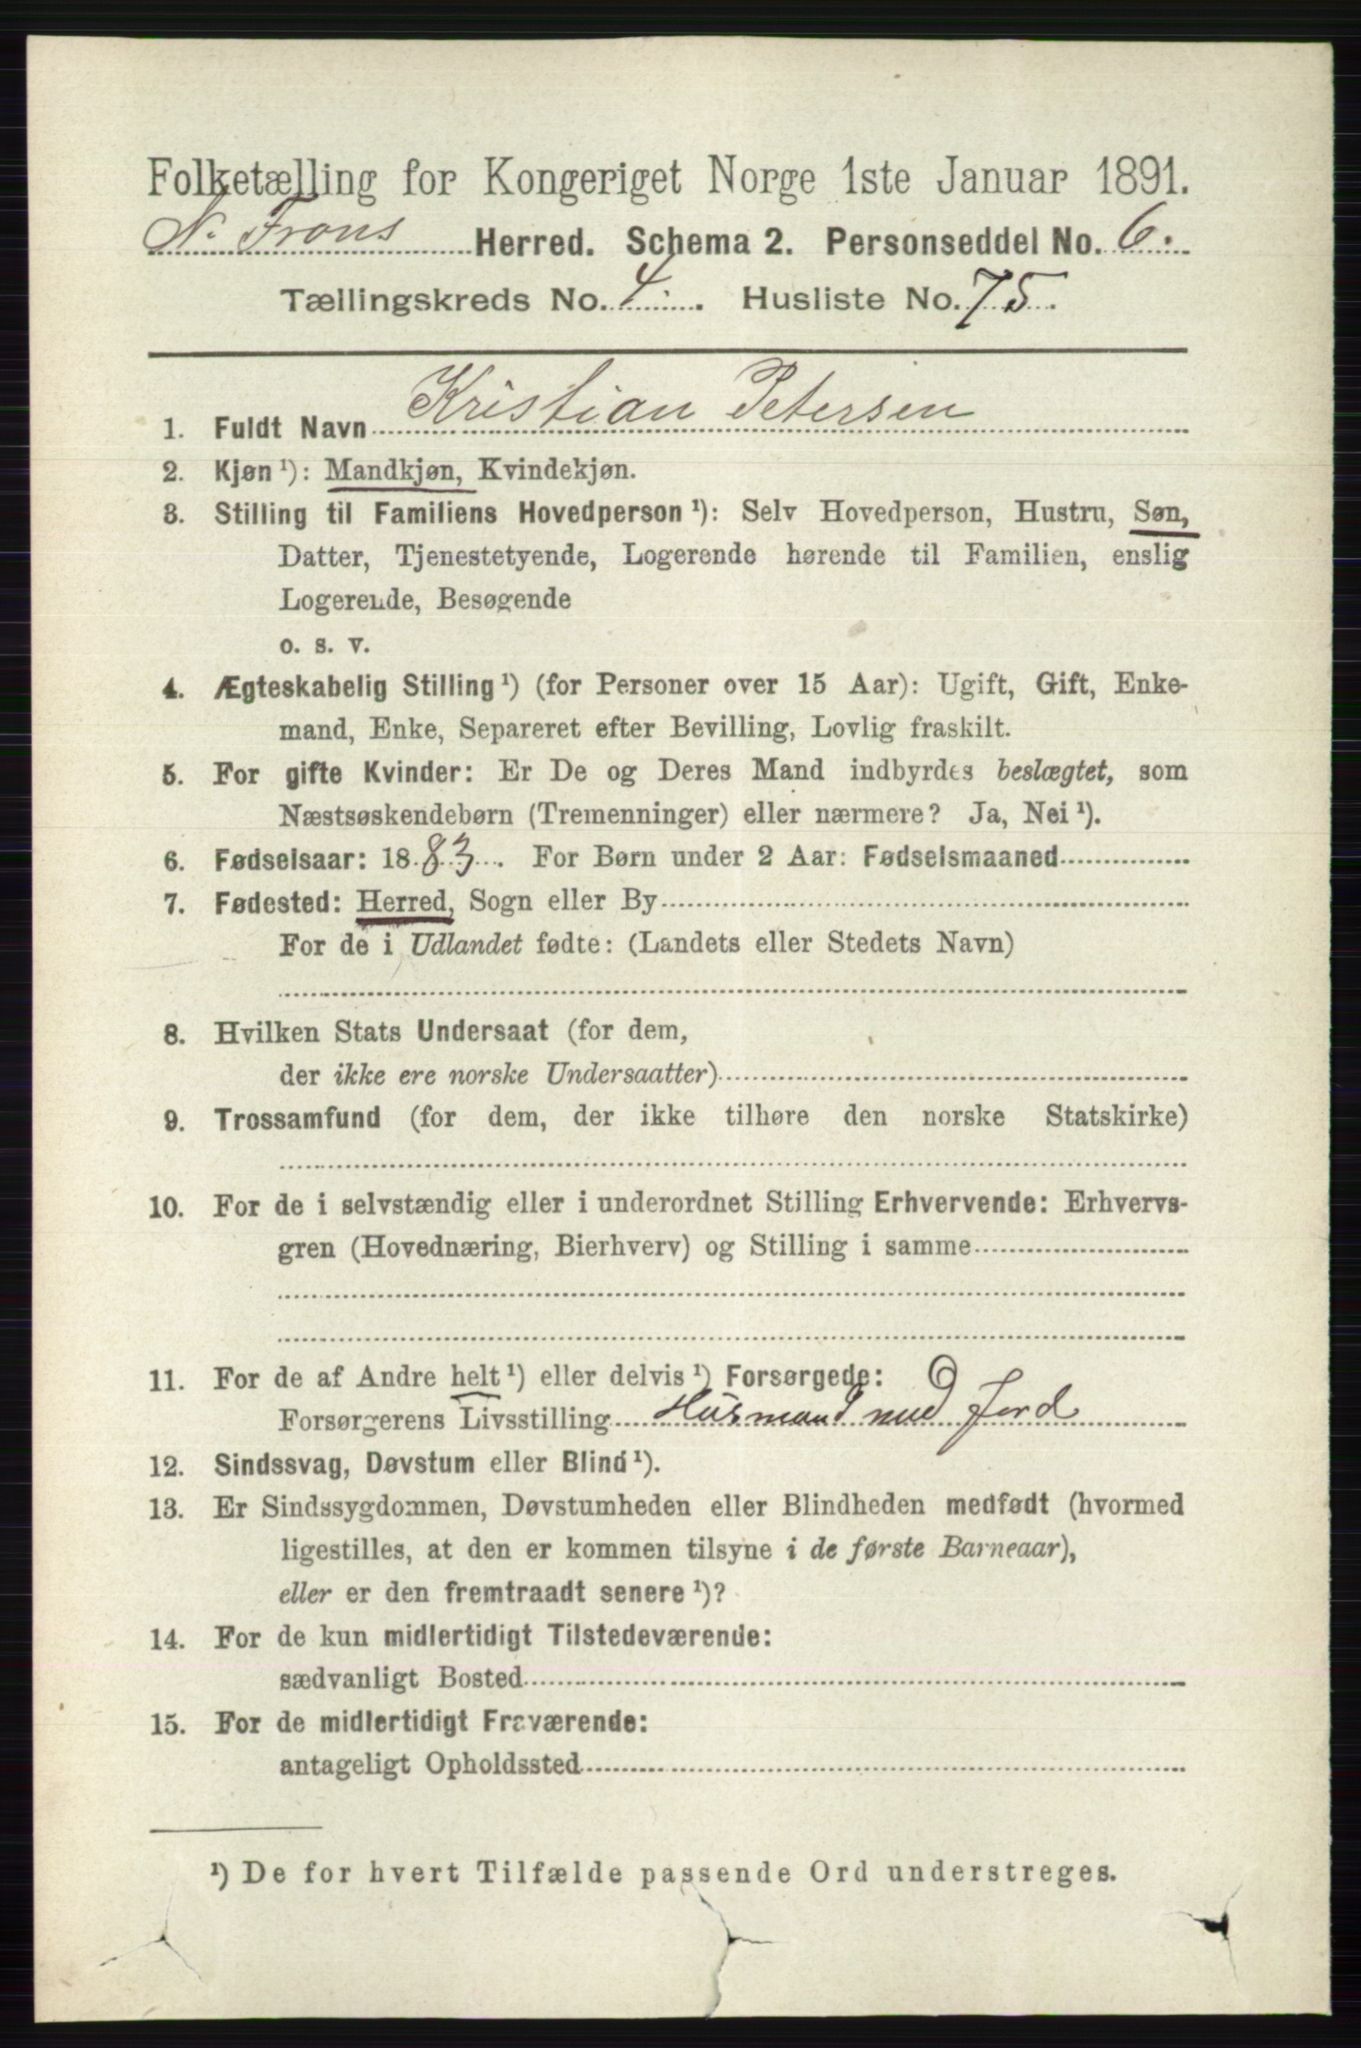 Folketælling for Kongeriget Norge 1ste Januar 1891.
N. Frons Herred. Schema 2. Personseddel No. 6.
Tællingskreds No. 4. Husliste No. 75.
1. Fuldt Navn Kristian Petersen
2. Kjøn ¹): Mandkjøn, Kvindekjøn.
3. Stilling til Familiens Hovedperson ¹): Selv Hovedperson, Hustru, Søn,
Datter, Tjenestetyende, Logerende hørende til Familien, enslig
Logerende, Besøgende
o. s. v.
4. Ægteskabelig Stilling ¹) (for Personer over 15 Aar): Ugift, Gift, Enke-
mand, Enke, Separeret efter Bevilling, Lovlig fraskilt.
5. For gifte Kvinder: Er De og Deres Mand indbyrdes beslægtet, som
Næstsøskendebørn (Tremenninger) eller nærmere? Ja, Nei ¹).
6. Fødselsaar: 1883. For Børn under 2 Aar: Fødselsmaaned
7. Fødested: Herred, Sogn eller By
For de i Udlandet fødte: (Landets eller Stedets Navn)
8. Hvilken Stats Undersaat (for dem,
der ikke ere norske Undersaatter)
9. Trossamfund (for dem, der ikke tilhøre den norske Statskirke)
10. For de i selvstændig eller i underordnet Stilling Erhvervende: Erhvervs-
gren (Hovednæring, Bierhverv) og Stilling i samme
11. For de af Andre helt ¹) eller delvis ¹) Forsørgede:
Forsørgerens Livsstilling Husmand med Jord
12. Sindssvag, Døvstum eller Blind ¹).
13. Er Sindssygdommen, Døvstumheden eller Blindheden medfødt (hvormed
ligestilles, at den er kommen tilsyne i de første Barneaar),
eller er den fremtraadt senere ¹)?
14. For de kun midlertidigt Tilstedeværende:
sædvanligt Bosted
15. For de midlertidigt Fraværende:
antageligt Opholdssted
¹) De for hvert Tilfælde passende Ord understreges.